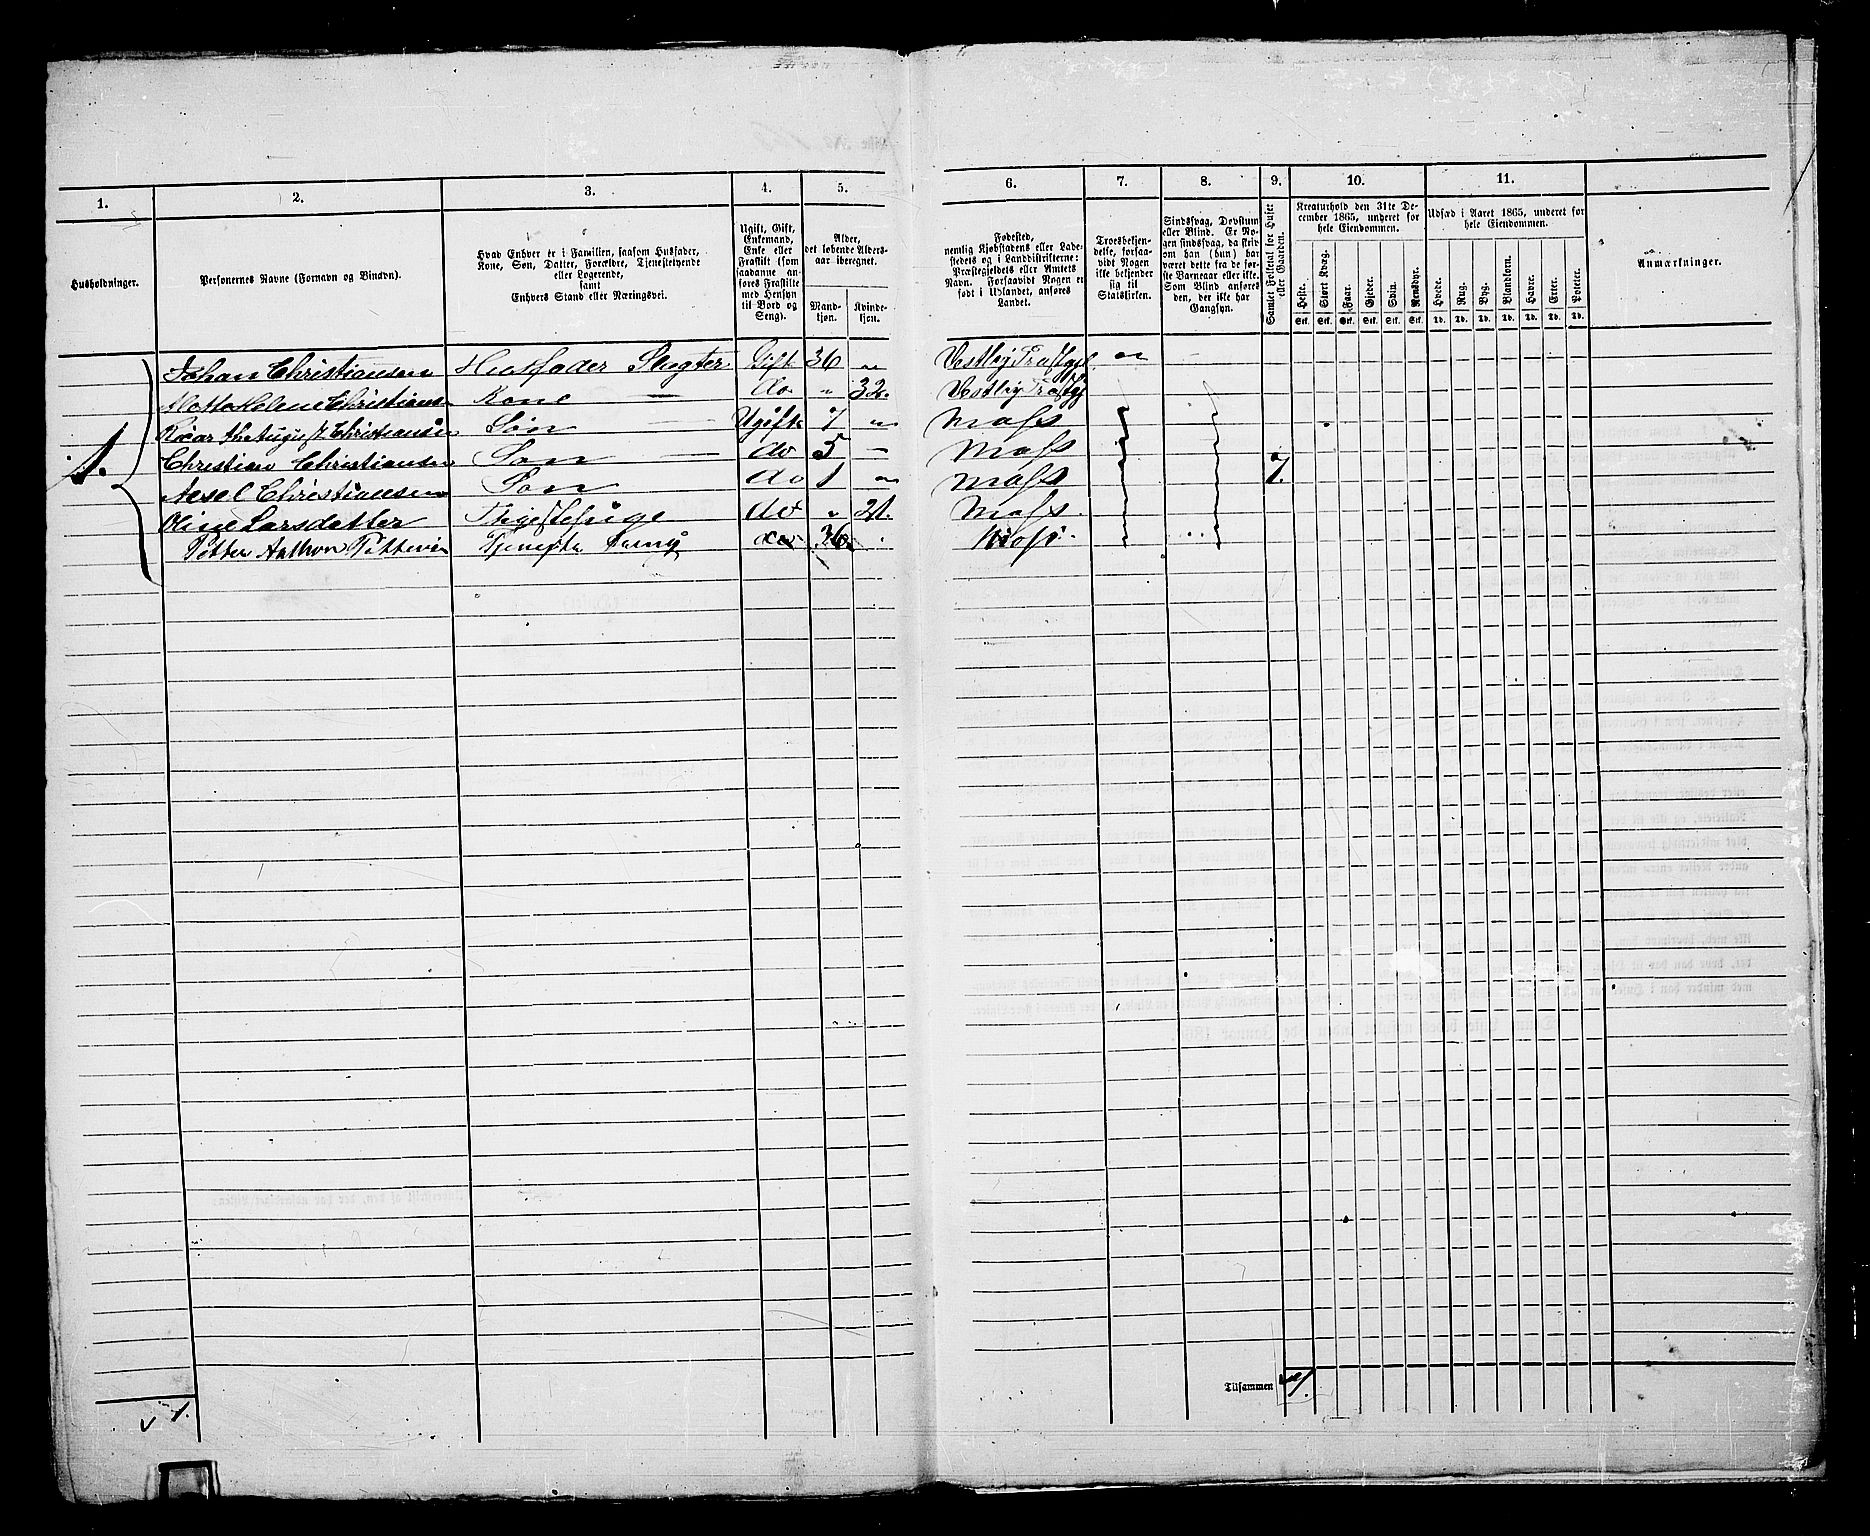 1. 2. 3. 4. 5. 6. 7. 8. 9. 10. 11.
Husholdninger.
Personernes Navne (Fornavn og Binavn).
Hvad Enhver er i Familien, saasom Husfader,
Kone, Søn, Datter, Forældre, Tjenestetyende
eller Logerende,
samt
Enhvers Stand eller Næringsvei.
Ugift, Gift,
Enkemand,
Enke eller
Fraskilt (som
saadanne an-
føres Fraskilte
med Hensyn
til Bord og
Seng).
Alder,
det løbende Alders-
aar iberegnet.
Mand-
kjøn.
Kvinde-
kjøn.
Fødested,
nemlig Kjøbstadens eller Lade-
stedets og i Landdistrikterne:
Præstegjeldets eller Amtets
Navn. (Forsaavidt Nogen er
født i Udlandet, anføres
Landet.
Troesbekjen-
delse, forsaa-
vidt Nogen
ikke bekjender
sig til
Statskirken.
Sindssvag, Døvstum
eller Blind. Er No-
gen sindssvag, da skriv
om han (hun) har
været dette fra de før-
ste Barneaar eller ikke.
Som Blind anføres
den, der ikke har
Gangsyn.
Samlet Folketal for Huset
eller Gaarden.
Kreaturhold den 31te De-
cember 1865, underet for
hele Eiendommen.
Heste. Stort Kvæg. Faar. Gjeder. Svin. Rensdyr.
Stk. Stk. Stk. Stk. Stk. Stk.
Udsæd i Aaret 1865, underet for
hele Eiendommen.
Hvede. Rug. Byg. Blandkorn. Havre. Erter. Poteter.
Td. Td. Td. Td. Td. Td. Td.
Anmærkninger.
1.
Johan Christiansen Husfader Slagter Gift 36 " Vestby "
Helene Christians Kone — do " 32. Vestby
August Christiansen Søn Ugift 7 " Moss
Christian Christiansen Søn — do 5 — Moss
Axsel Christiansen Søn do 1 " Moss 7.
Oline Larsdatter do " 21. Moss.
Petter Anthon do 36. Moss.
Tilsammen 7.
1.